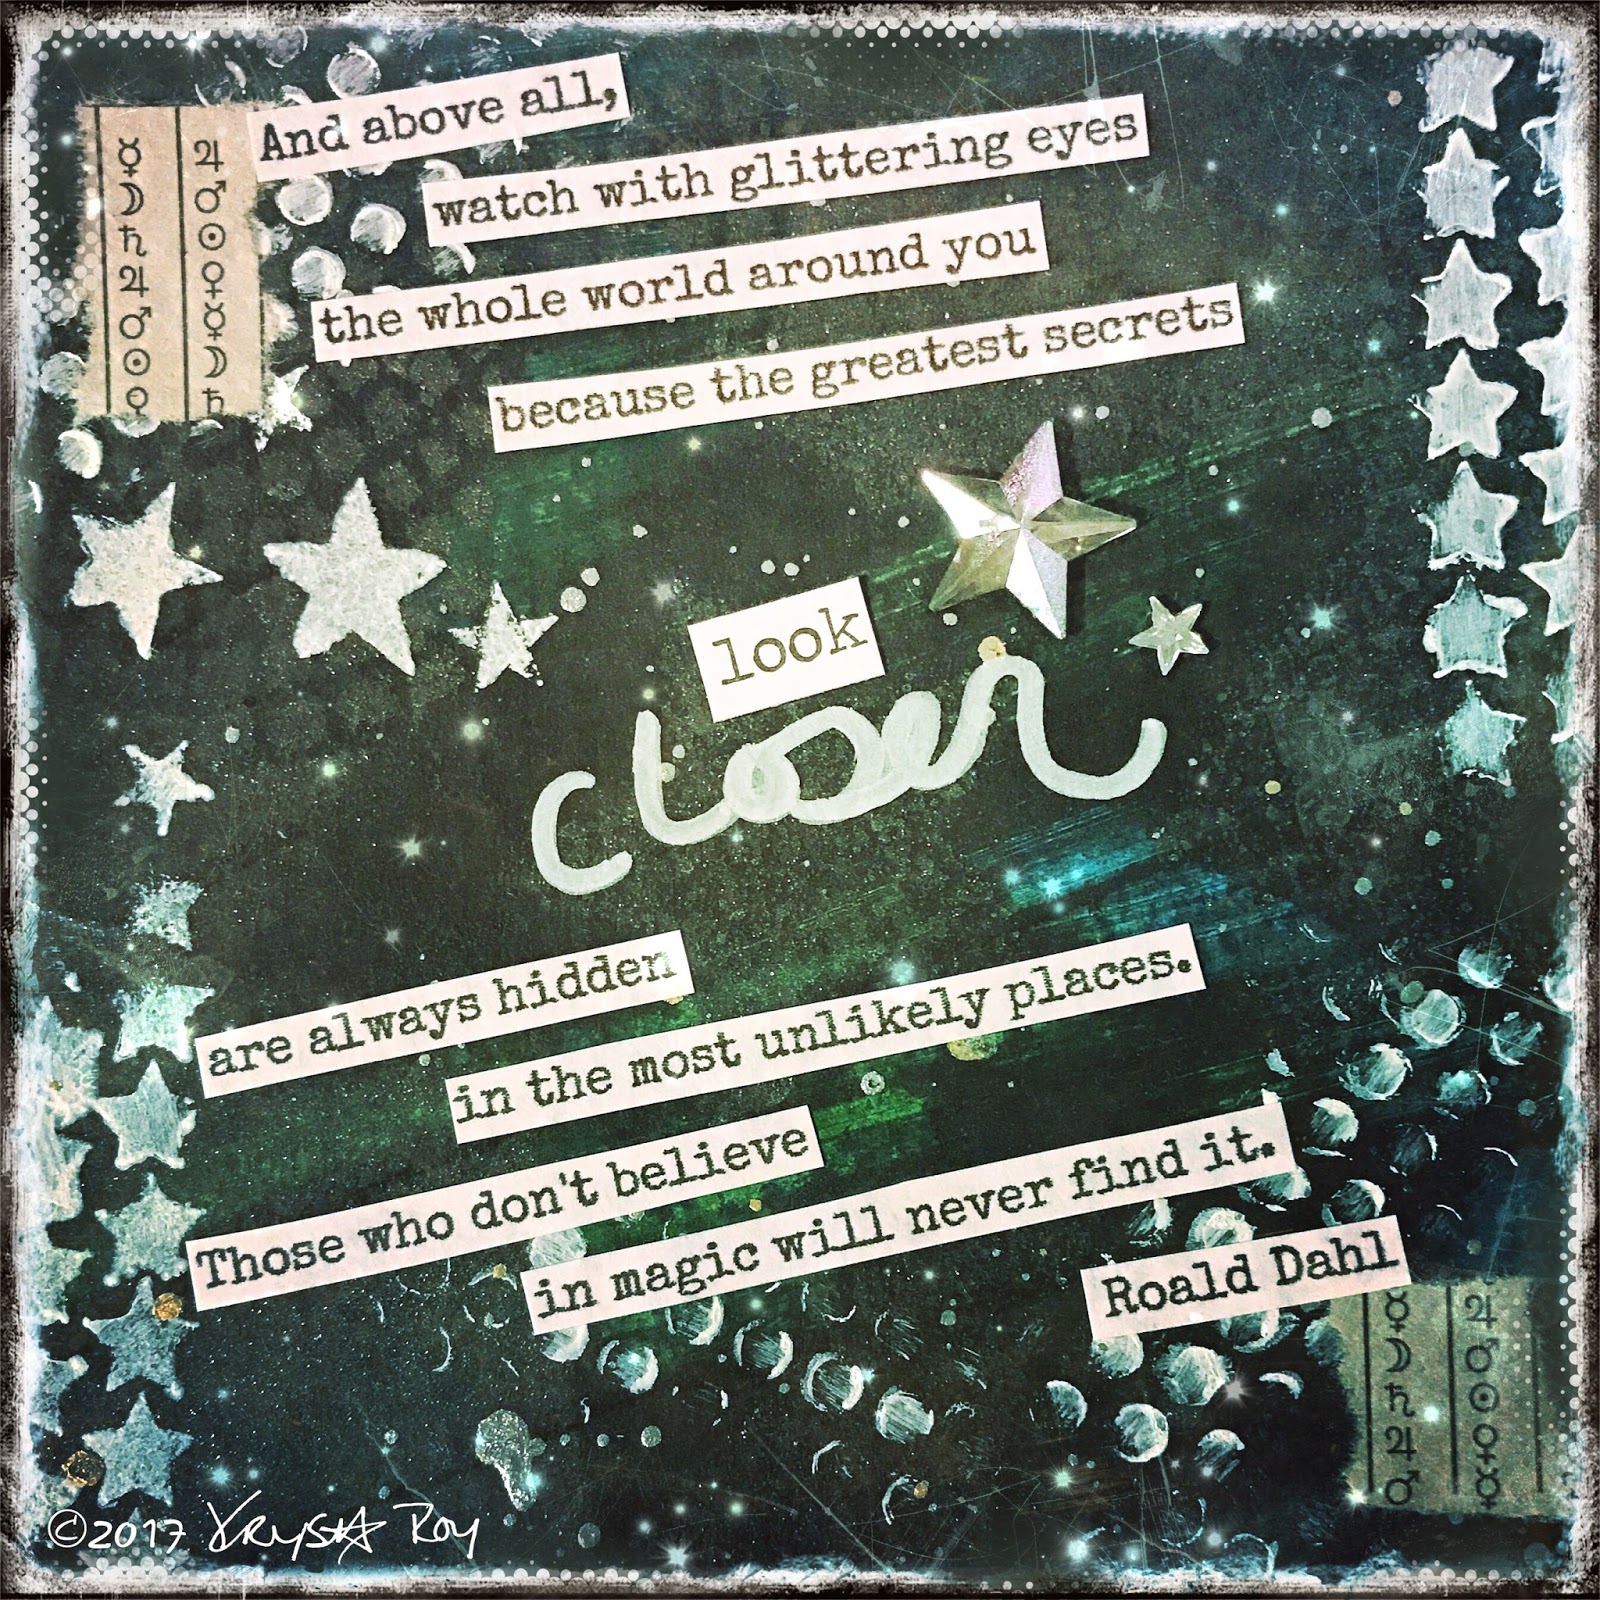 And above all,
watch with glittering eyes
the whole world around you
because the greatest secrets
look
closer
are always hidden
in the most unlikely places.
Those who don't believe
in magic will never find it.
Roald Dahl
☿ ♃
☽ ♂
♄ ☉
♃ ♀
♂ ☿
☉ ☽
♀ ♄
☿ ♃
☽ ♂
♄ ☉
♃ ♀
♂ ☿
©2017 Krysta Roy